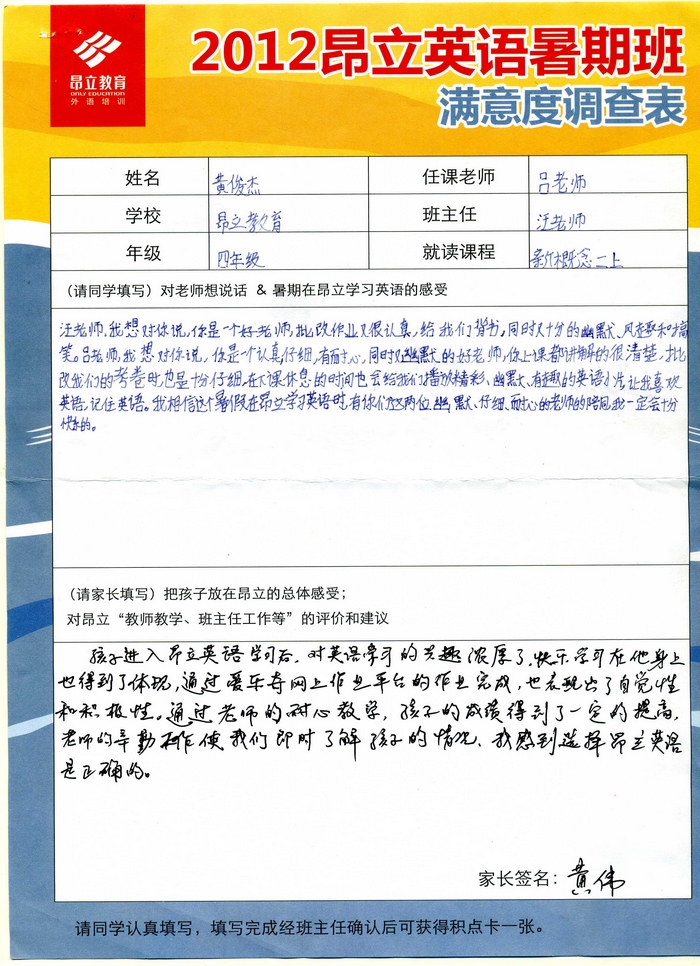 昂立教育
ONLY EDUCATION
外语培训
2012昂立英语暑期班
满意度调查表
姓名 黄俊杰 任课老师 吕老师
学校 昂立教育 班主任 汪老师
年级 四年级 就读课程 新概念二上
(请同学填写)对老师想说话 & 暑期在昂立学习英语的感受
汪老师,我想对你说,你是一个好老师,批改作业又很认真,给我们背书,同时又十分的幽默、风趣和搞
笑。吕老师,我想对你说,你是个认真,仔细,有耐心,同时又幽默的好老师,你上课都讲解的很清楚,批
改我们的考卷时也是十分仔细,在下课休息的时间也会给我们播放精彩、幽默、有趣的英语小片,让我喜欢
英语,记住英语。我相信这个暑假在昂立学习英语时,有你们这两位幽默、仔细、耐心的老师的陪同,我一定会十分
快乐的。
(请家长填写)把孩子放在昂立的总体感受;
对昂立“教师教学、班主任工作等”的评价和建议
孩子进入昂立英语学习后,对英语学习的兴趣浓厚了,快乐学习在他身上
也得到了体现,通过爱乐奇网上作业平台的作业完成,也表现出了自觉性
和积极性。通过老师的耐心教学,孩子的成绩得到了一定的提高,
老师的辛勤工作使我们即时了解孩子的情况、我感到选择昂立英语
是正确的。
家长签名:黄伟
请同学认真填写,填写完成经班主任确认后可获得积点卡一张。